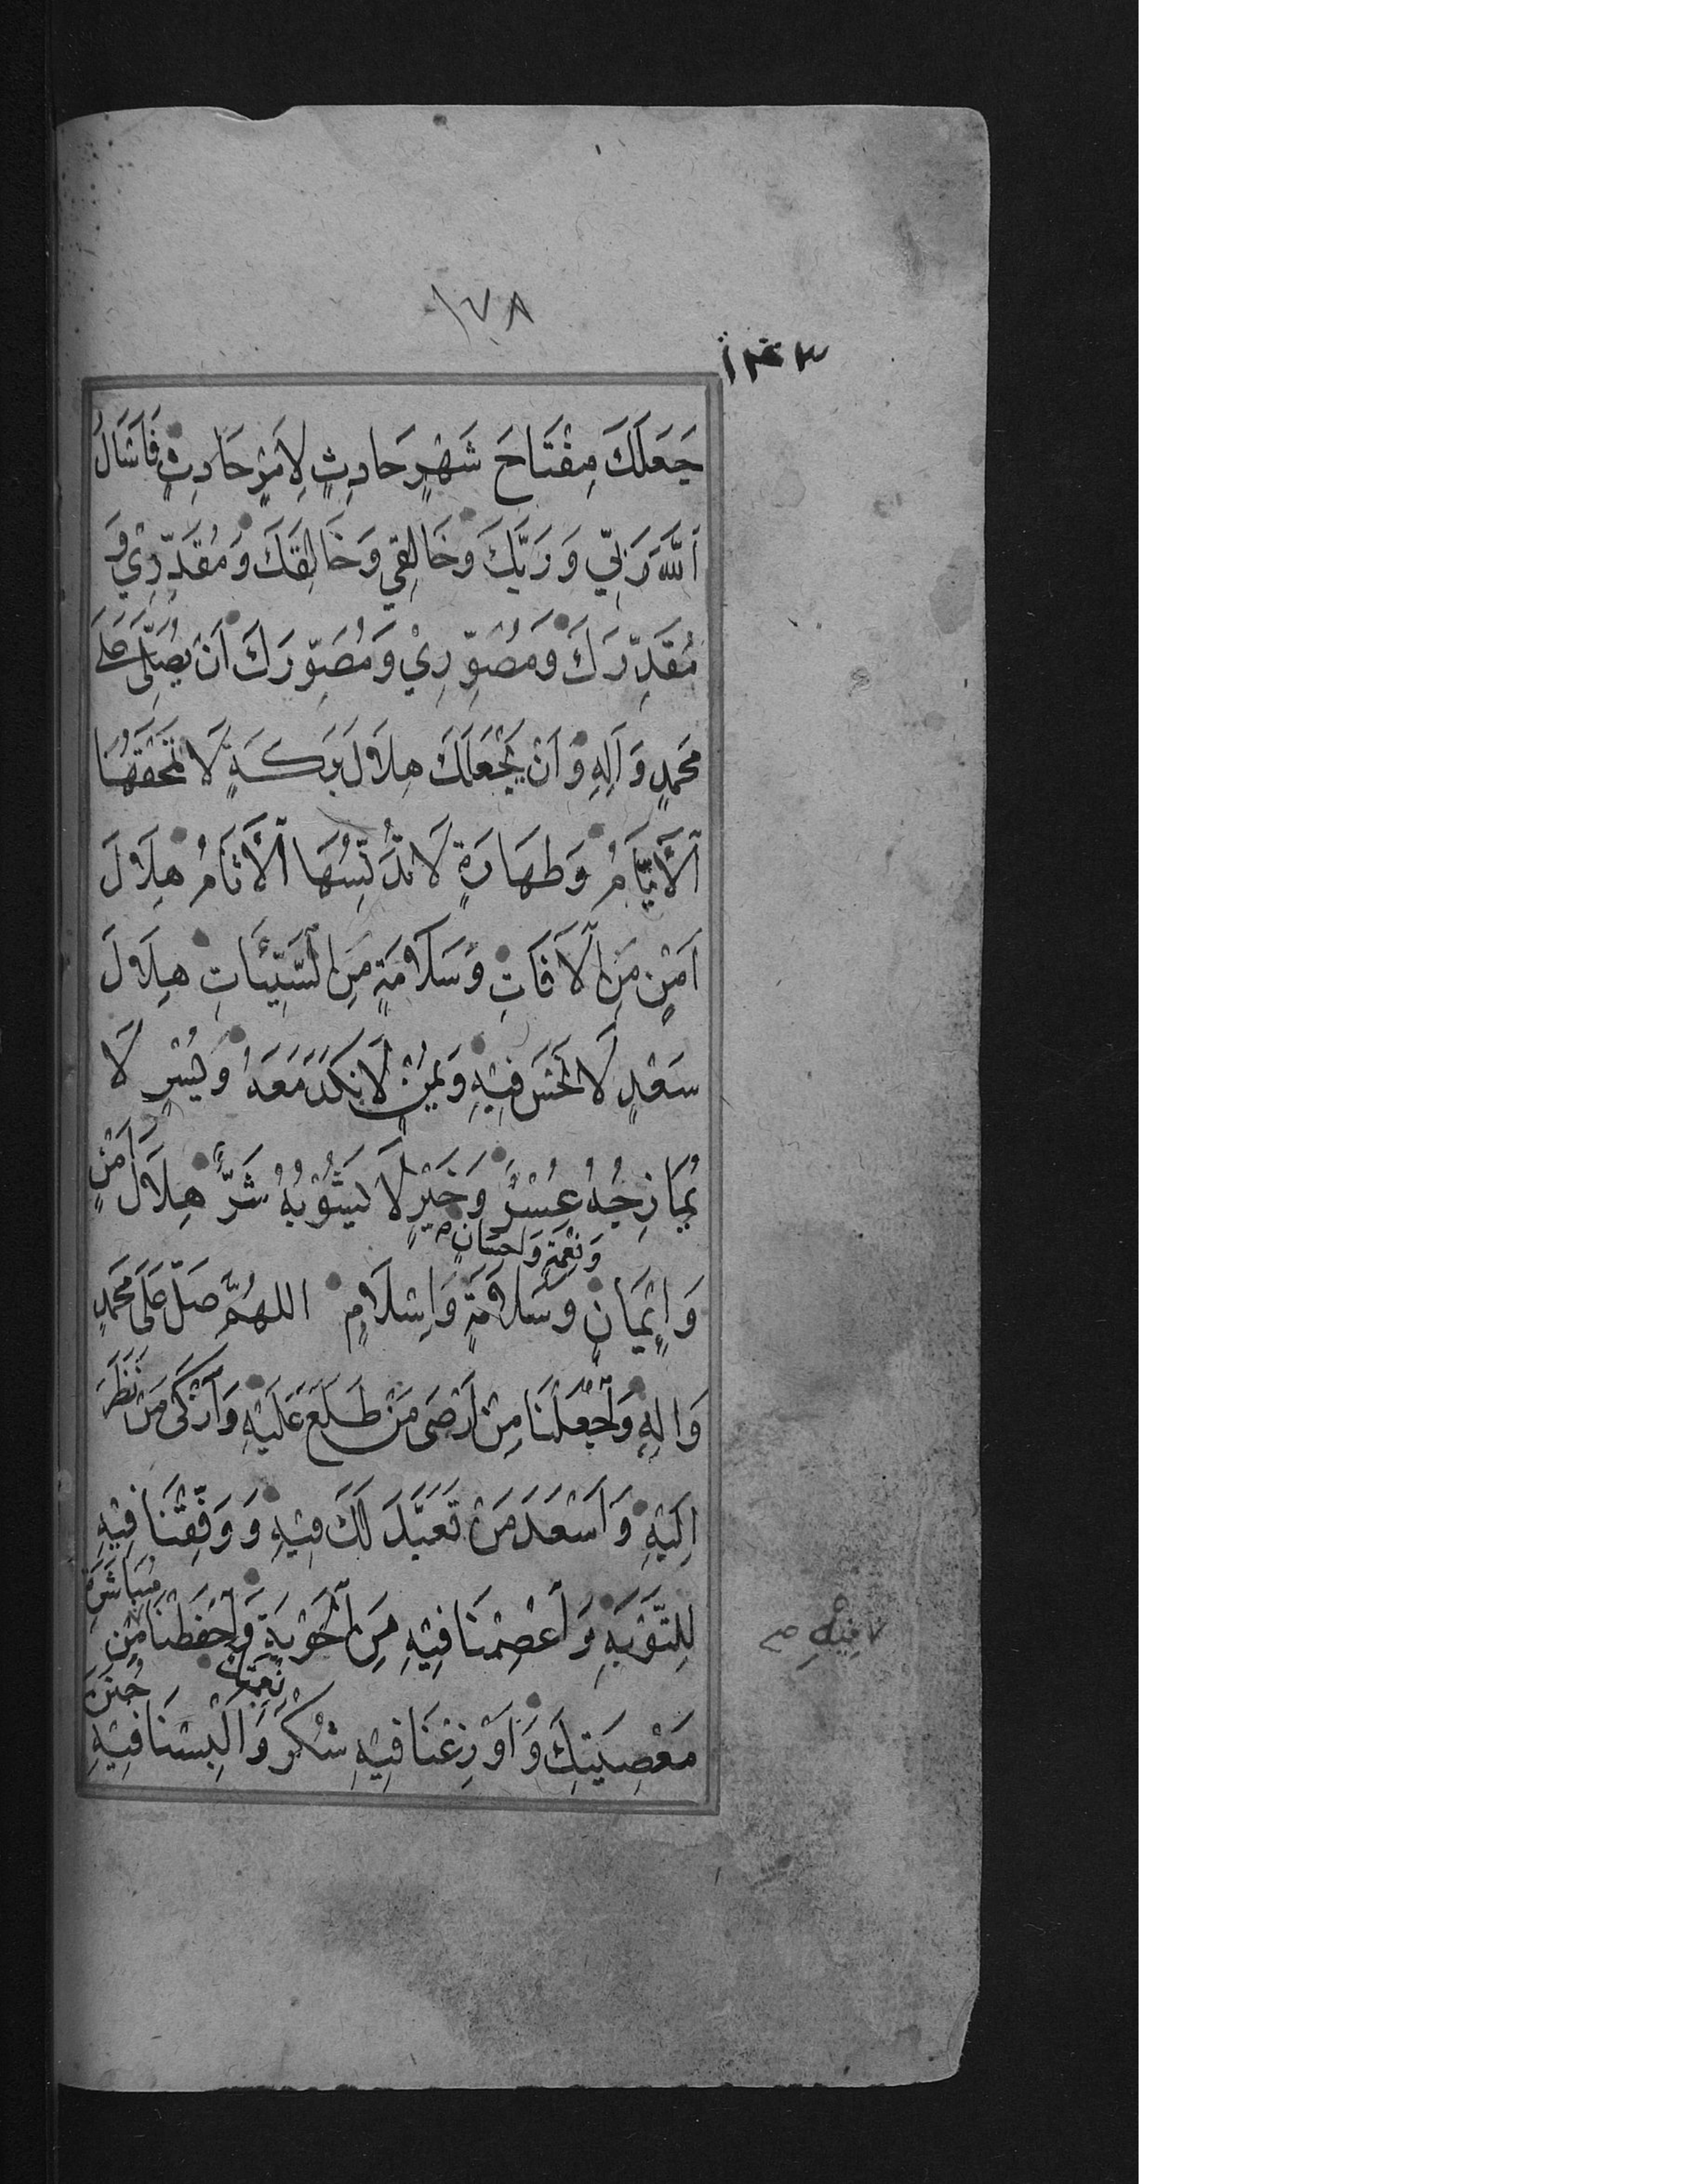 ١٧٨
١٤٣
جَعَلَكَ مِفْتَاحَ شَهْرٍ حَادِثٍ لِاَمْرٍ حَادِثٍ فَاَسْاَلُ
اَللّٰهَ رَبِّي وَ رَبَّكَ وَخَالِقِي وَخَالِقَكَ وَمُقَدِّرِيْ وَ
مُقَدِّرَكَ وَمُصَوِّرِيْ وَمُصَوِّرَكَ اَنْ يُصَلِّىَ عَلَى
مُحَمَّدٍ وَاٰلِهِ وَاَنْ يَجْعَلَكَ هِلَالَ بَرَكَةٍ لَا تَمْحَقُهَا
اَلْأَيَّامُ وَطَهَارَةٍ لَا تُدَنِّسُهَا اَلْأَثَامُ هِلَالَ
اَمْنٍ مِنَ الْاٰفَاتِ وَسَلَامَةٍ مِنَ السَّيِّئَاتِ هِلَالَ
سَعْدٍ لَا نَحْسَ فِيْهِ وَيُمْنٍ لَا نَكَدَ مَعَهُ وَيُسْرٍ لَا
يُمَازِجُهُ عُسْرٌ وَخَيْرٍ لَا يَشُوْبُهُ شَرٌّ هِلَالَ اَمْنٍ
وَنِعْمَةٍ وَاِحْسَانٍ
وَاِيْمَانٍ وَسَلَامَةٍ وَاِسْلَامٍ اللهُمَّ صَلِّ عَلَى مُحَمَّدٍ
وَاٰلِهِ وَاجْعَلْنَا مِنْ اَرْضَى مَنْ طَلَعَ عَلَيْهِ وَاَزْكَى مَنْ نَظَرَ
اِلَيْهِ وَاَسْعَدَ مَنْ تَعَبَّدَ لَكَ فِيْهِ وَ وَفِّقْنَا فِيْهِ
لِلتَّوْبَةِ وَاعْصِمْنَا فِيْهِ مِنَ الْحَوْبَةِ وَاحْفَظْنَا مِنْ مُبَاشَرَةِ
فِيْهِ
مَعْصِيَتِكَ وَاَوْزِعْنَا فِيْهِ شُكْرَ نِعْمَتِكَ وَاَلْبِسْنَا فِيْهِ جُنَنَ